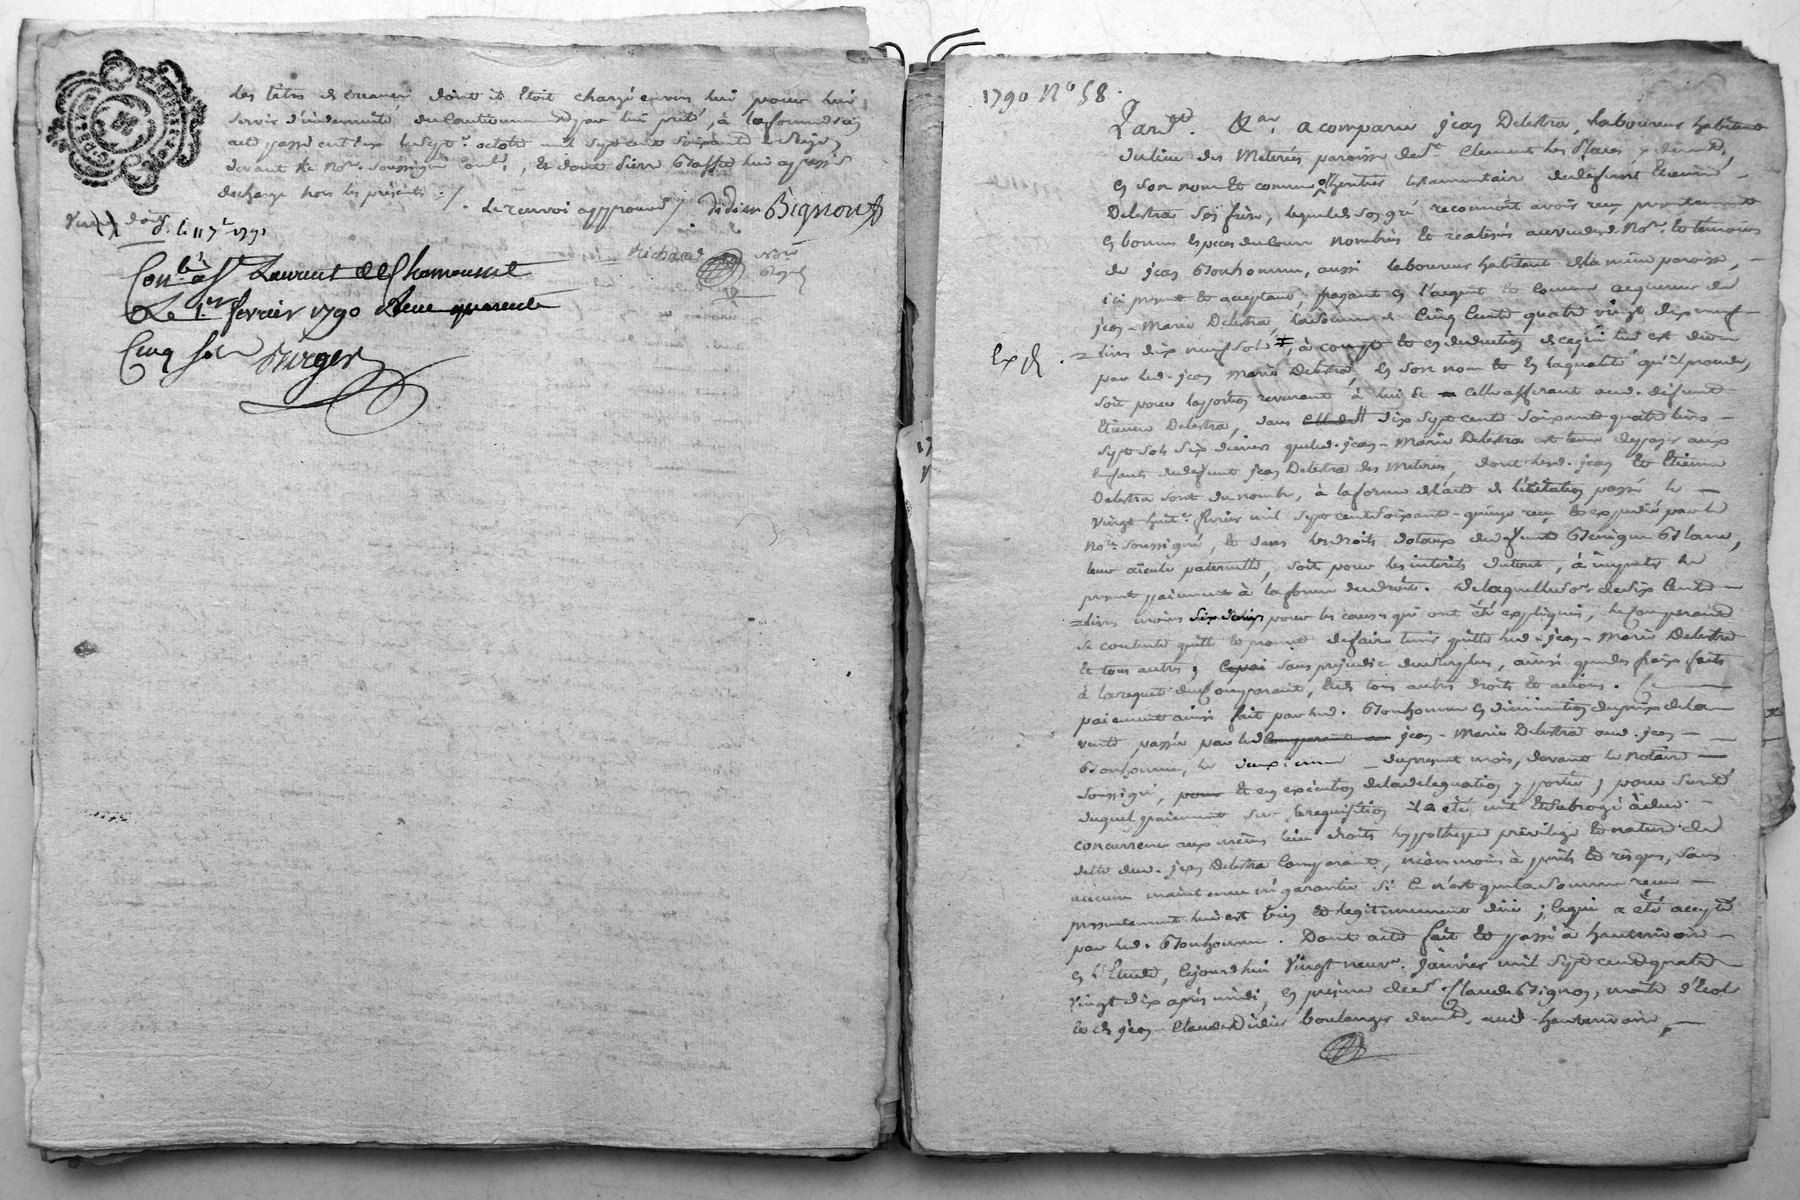 les titres de creance dont il étoit chargé envers lui pour lui
servir d'indemnité du cautionnement par lui prêté, à la forme d'un
acte passé
devant le No.re soussigné
décharge par les présentes ./.
Le renvoi approuvé / Didier Bignon
Richard
Con.lé à St Laurent de Chamousset
Le 1.er fevrier 1790 Reçu quarente
Cinq sols Durger
1790 N.o 58.
Pardt. &ar. a comparu jean Delestra, laboureur habitant
du lieu des Meteries paroisse de St. Clement les Places y demt,
en son nom et comme heritier testamentaire du defunt Etienne
Delestra son frere, lequel de son gré reconnoit avoir reçu presentement
en bonnes especes du cours nombrées et realisées au vu du d. No.re et temoins
de jean Bonhomme, aussi laboureur habitant de la même paroisse,
ici present et acceptant, payant en l'acquit et comme acquereur de
jean-Marie Delestra, la somme de Cinq Cents quatre vingt dix neuf
livres dix neuf sols ‡, à compte et en deduction de ce qui lui est dû
Exp.
par led. jean Marie Delestra, en son nom et en la qualité qu'il procede,
soit pour la portion revenant à lui et celle afferant aud. défunt
Etienne Delestra, dans dix sept cent soixante quatre livres
sept sols six deniers que led. jean-Marie Delestra est tenu de payer aux
enfants du defunt jean Delestra des Meteries, dont lesd. jean et Etienne
Delestra sont du nombre, à la forme de l'acte de licitation passé le
vingt huit.e fevrier mil sept cent soixante-quinze reçu et expedié par le
No.re soussigné, et dans les droits dotaux de defunte Benigne Blanc,
leur aïeule paternelle, soit pour les intérêts du tout, à imputer le
present paiement à la forme du droit. De laquelle so.e de six Cent
livres moins six deniers pour les causes qui ont été expliquées, le Comparant
se contente quitte et promet de faire tenir quitte led. jean-Marie Delestra
et tous autres, sans prejudice du surplus, ainsi que des fraix faits
à la requete du Comparant, et de tous autres droits et actions. Ce
paiement ainsi fait par led. Bonhomme en diminution du prix de la
vente passée par led. comparant jean-Marie Delestra aud. jean
Bonhomme, le deuxieme du present mois, devant le Notaire
soussigné, et en exécution de la delegation y portée, pour sureté
duquel paiement sur la requisition il a été mis et subrogé à due
concurrence aux mêmes lieu droits hypotheque privilege et nature de
dette dud. jean Delestra Comparant, néanmoins à perils et risques, sans
aucune maintenue ni garantie si ce n'est que la somme reçue
presentement lui est bien et legitimement düe; ce qui a été accepté
par led. Bonhomme. Dont acte fait et passé à hauterivoire
en l'Etude, ce jourd'hui vingt neuve. Janvier mil sept cent quatre
vingt dix après midi, en presence de sr. Claude Bignon, maitre d'Ecole
et de jean-Claude Didier boulanger demt. aud. hauterivoire,